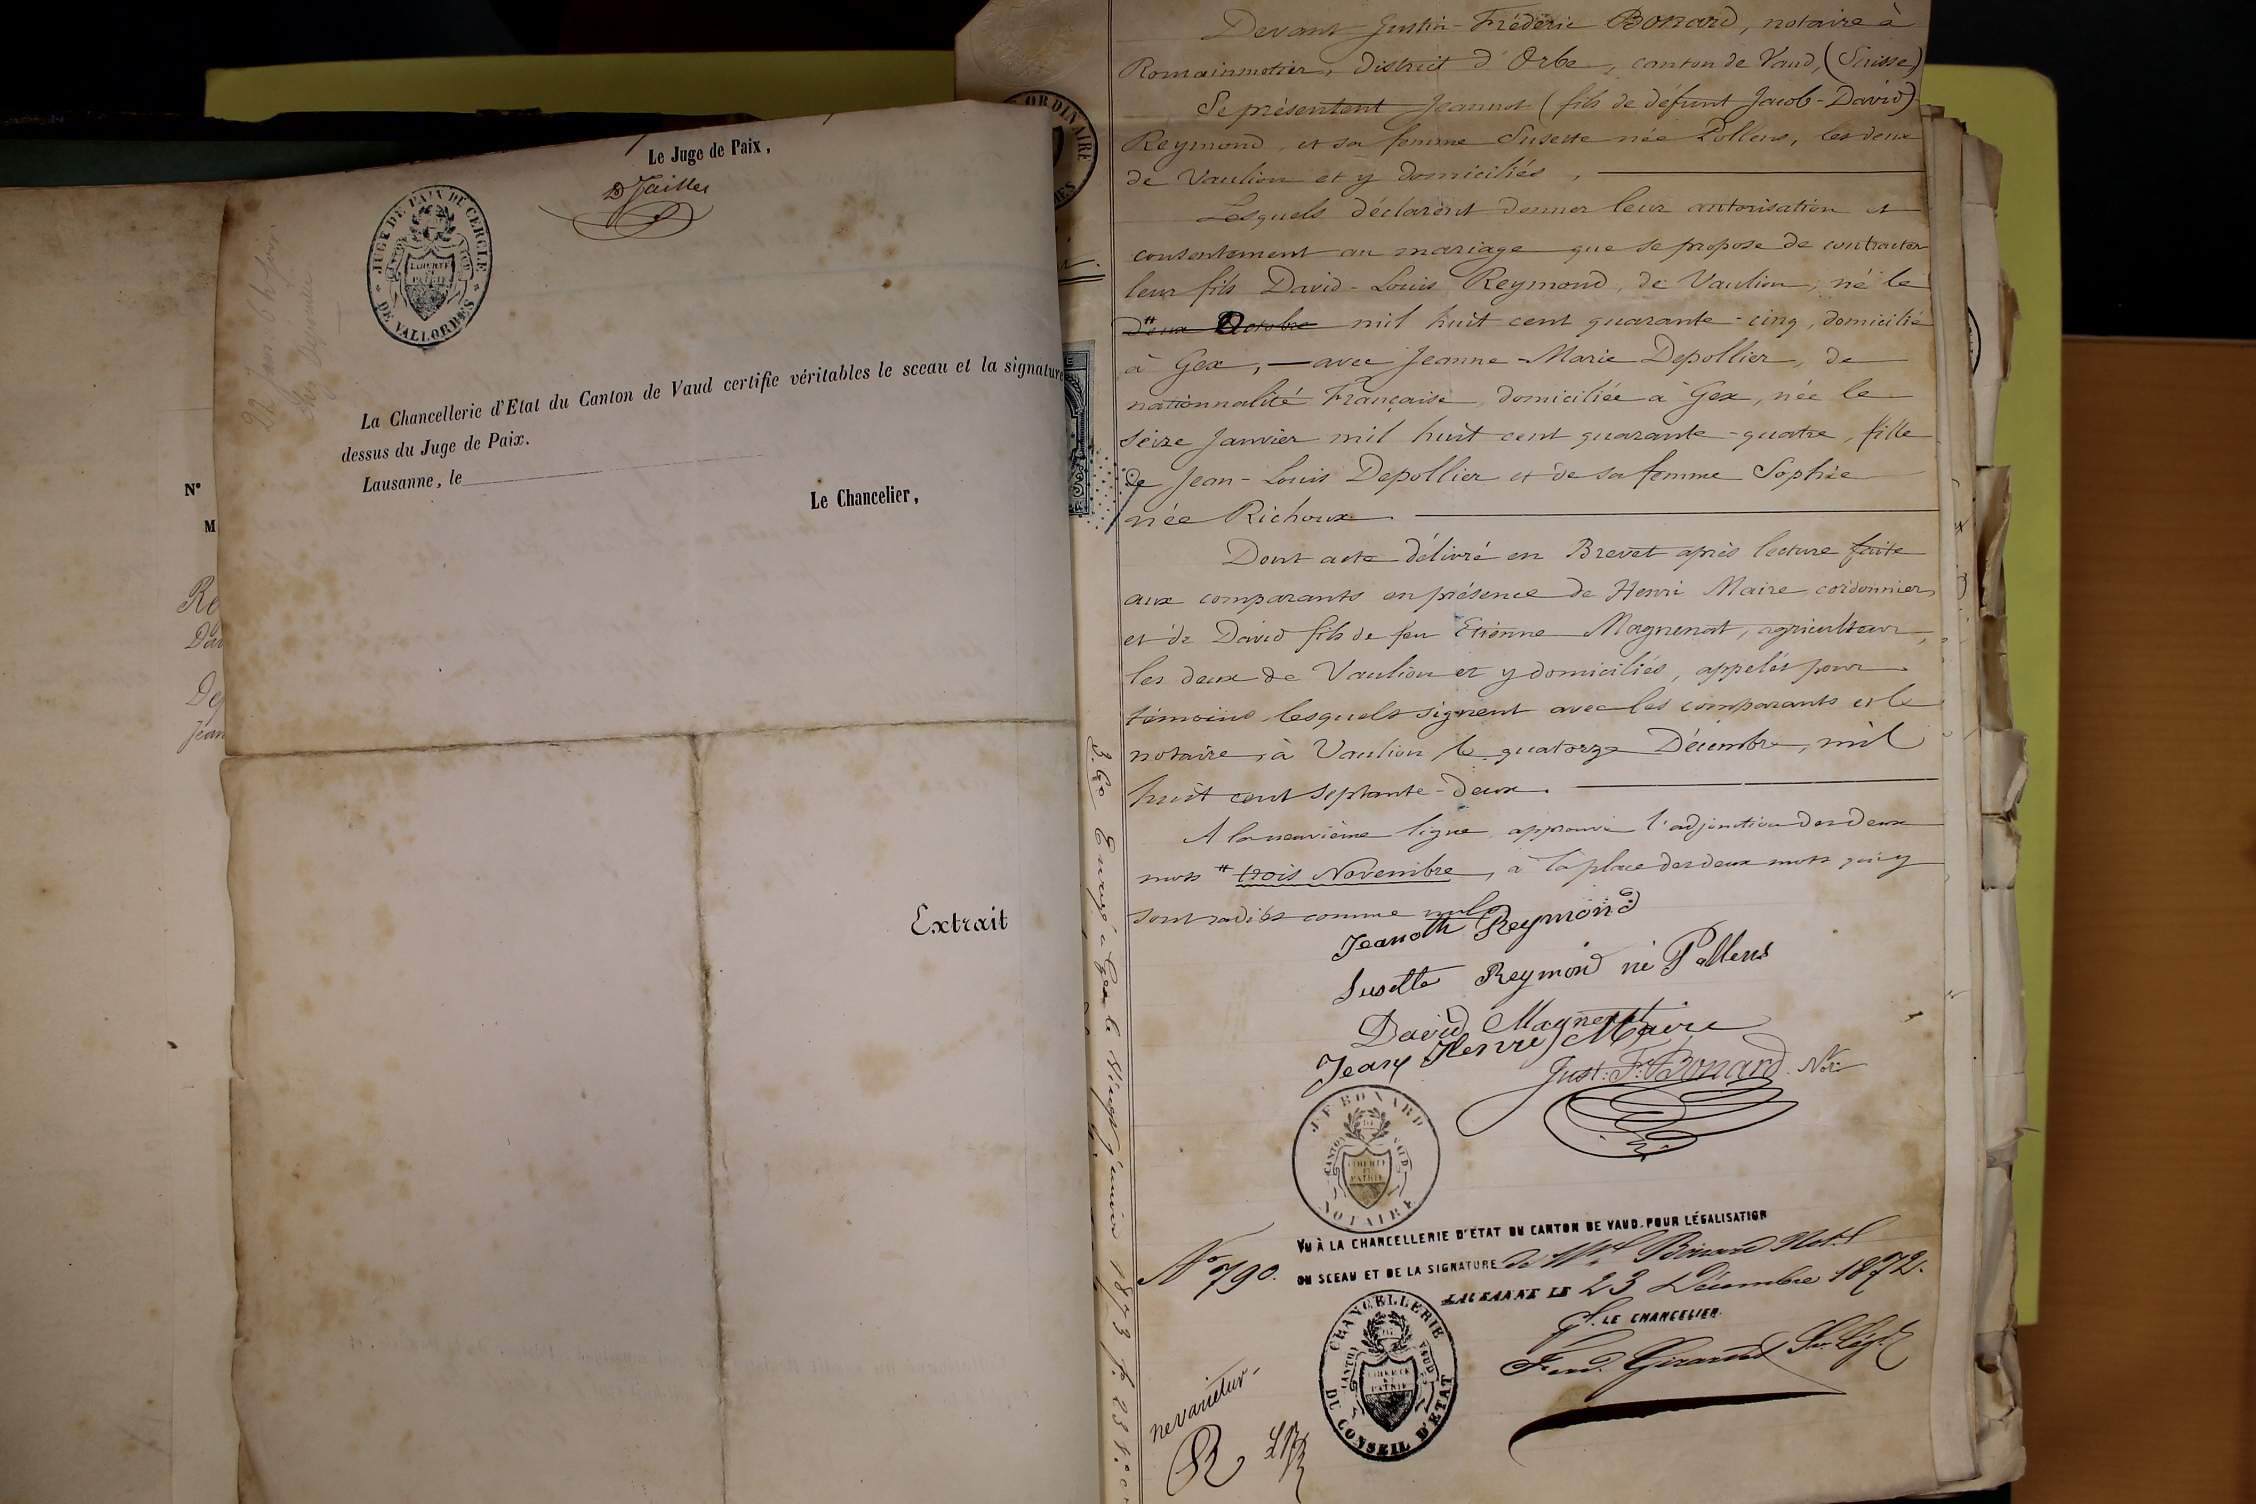 Le Juge de Paix,
JUGE DE PAIX DU CERCLE
DE VALLORBES
CANTON VAUD
LIBERTÉ
ET
PATRIE
22 Janv
La Chancellerie d'Etat du Canton de Vaud certifie véritables le sceau et la signature
dessus du Juge de Paix.
Lausanne, le
Le Chancelier,
Extrait
N°
M
Re
Dav
Dep
Jean
ORDINAIRE
Devant Justin-Fréderic Bonard, notaire à
Romainmotier, district d'Orbe, canton de Vaud, (Suisse)
Se présentent Jeannot (fils de défunt Jacob-David)
Reymond, et sa femme Susette née Pollens, les deux
de Vaulion et y domiciliés,
Lesquels déclarent donner leur autorisation et
consentement au mariage que se propose de contracter
leur fils David-Louis Reymond, de Vaulion, né le
deux Octobre mil huit cent quarante-cinq, domicilié
à Gex, — avec Jeanne-Marie Depollier, de
nationnalité Française, domiciliée à Gex, née le
seize Janvier mil huit cent quarante-quatre, fille
de Jean-Louis Depollier et de sa femme Sophie
née Richoux.
Dont acte délivré en Brevet après lecture faite
aux comparants en présence de Henri Maire cordonnier,
et de David fils de feu Etienne Magnenat, agriculteur,
les deux de Vaulion et y domiciliés, appelés pour
témoins lesquels signent avec les comparants et le
notaire, à Vaulion le quatorze Décembre, mil
huit cent septante-deux.
A la neuvième ligne approuvé l'adjonction des deux
mots # trois Novembre, à la place des deux mots qui y
sont radiés comme nuls
Jeanoth Reymond
Susette Reymond né Pollens
David Magnenat
Jean Henri Maire
Just: Fc Bonard Nre
J. F. BONARD
CANTON VAUD
LIBERTÉ
ET
PATRIE
NOTAIRE
VU À LA CHANCELLERIE D'ÉTAT DU CANTON DE VAUD, POUR LÉGALISATION
N° 790. DU SCEAU ET DE LA SIGNATURE de Mr Bonard Not.
LAUSANNE LE 23 Décembre 1872.
LE CHANCELIER
CHANCELLERIE
CANTON VAUD
LIBERTÉ
ET
PATRIE
DU CONSEIL D'ETAT
ne varietur
à Gex le vingt Janvier 1873 f. 23